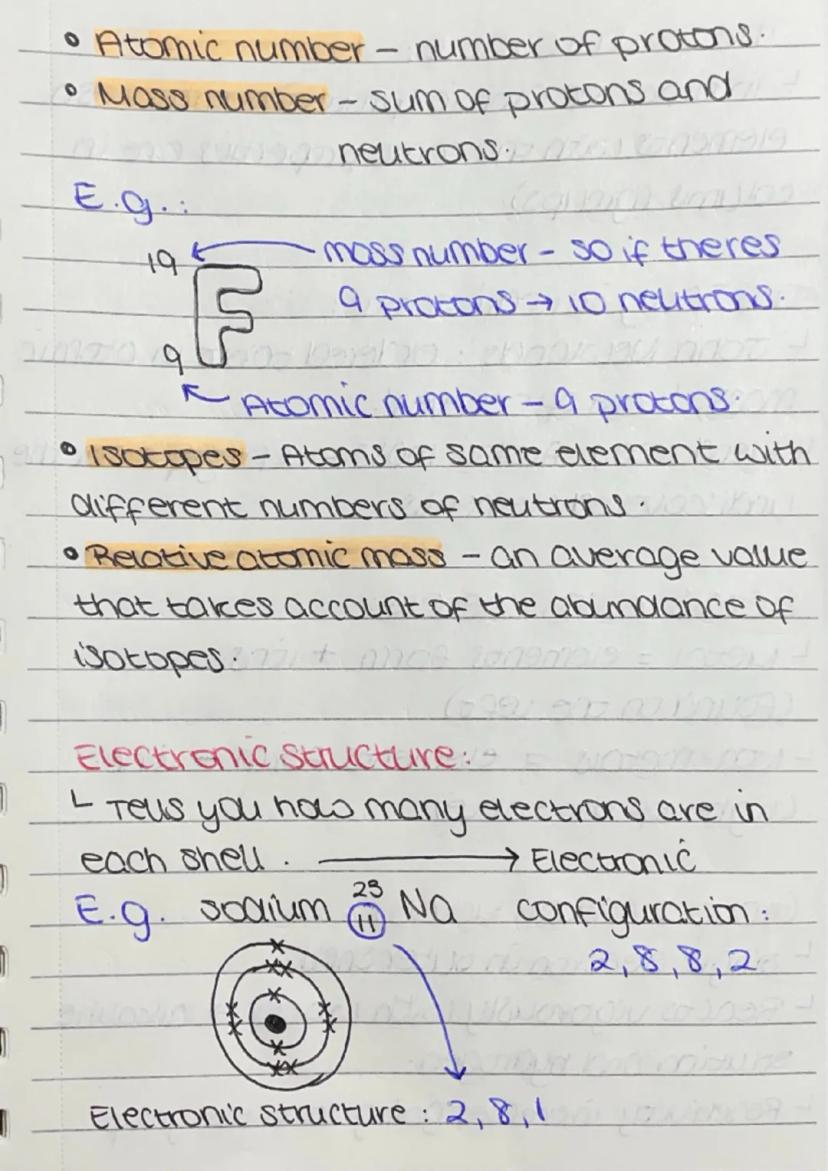 • Atomic number – number of protons.
• Mass number – sum of protons and
neutrons.
E.g.:
19 mass number – so if theres
F 9 protons → 10 neutrons.
9
Atomic number – 9 protons.
• Isotopes – Atoms of same element with
different numbers of neutrons.
• Relative atomic mass – an average value
that takes account of the abundance of
isotopes.
Electronic structure:
└ Tells you how many electrons are in
each shell. → Electronic
E.g. sodium 23 11 Na configuration:
2,8,8,2
Electronic structure: 2,8,1